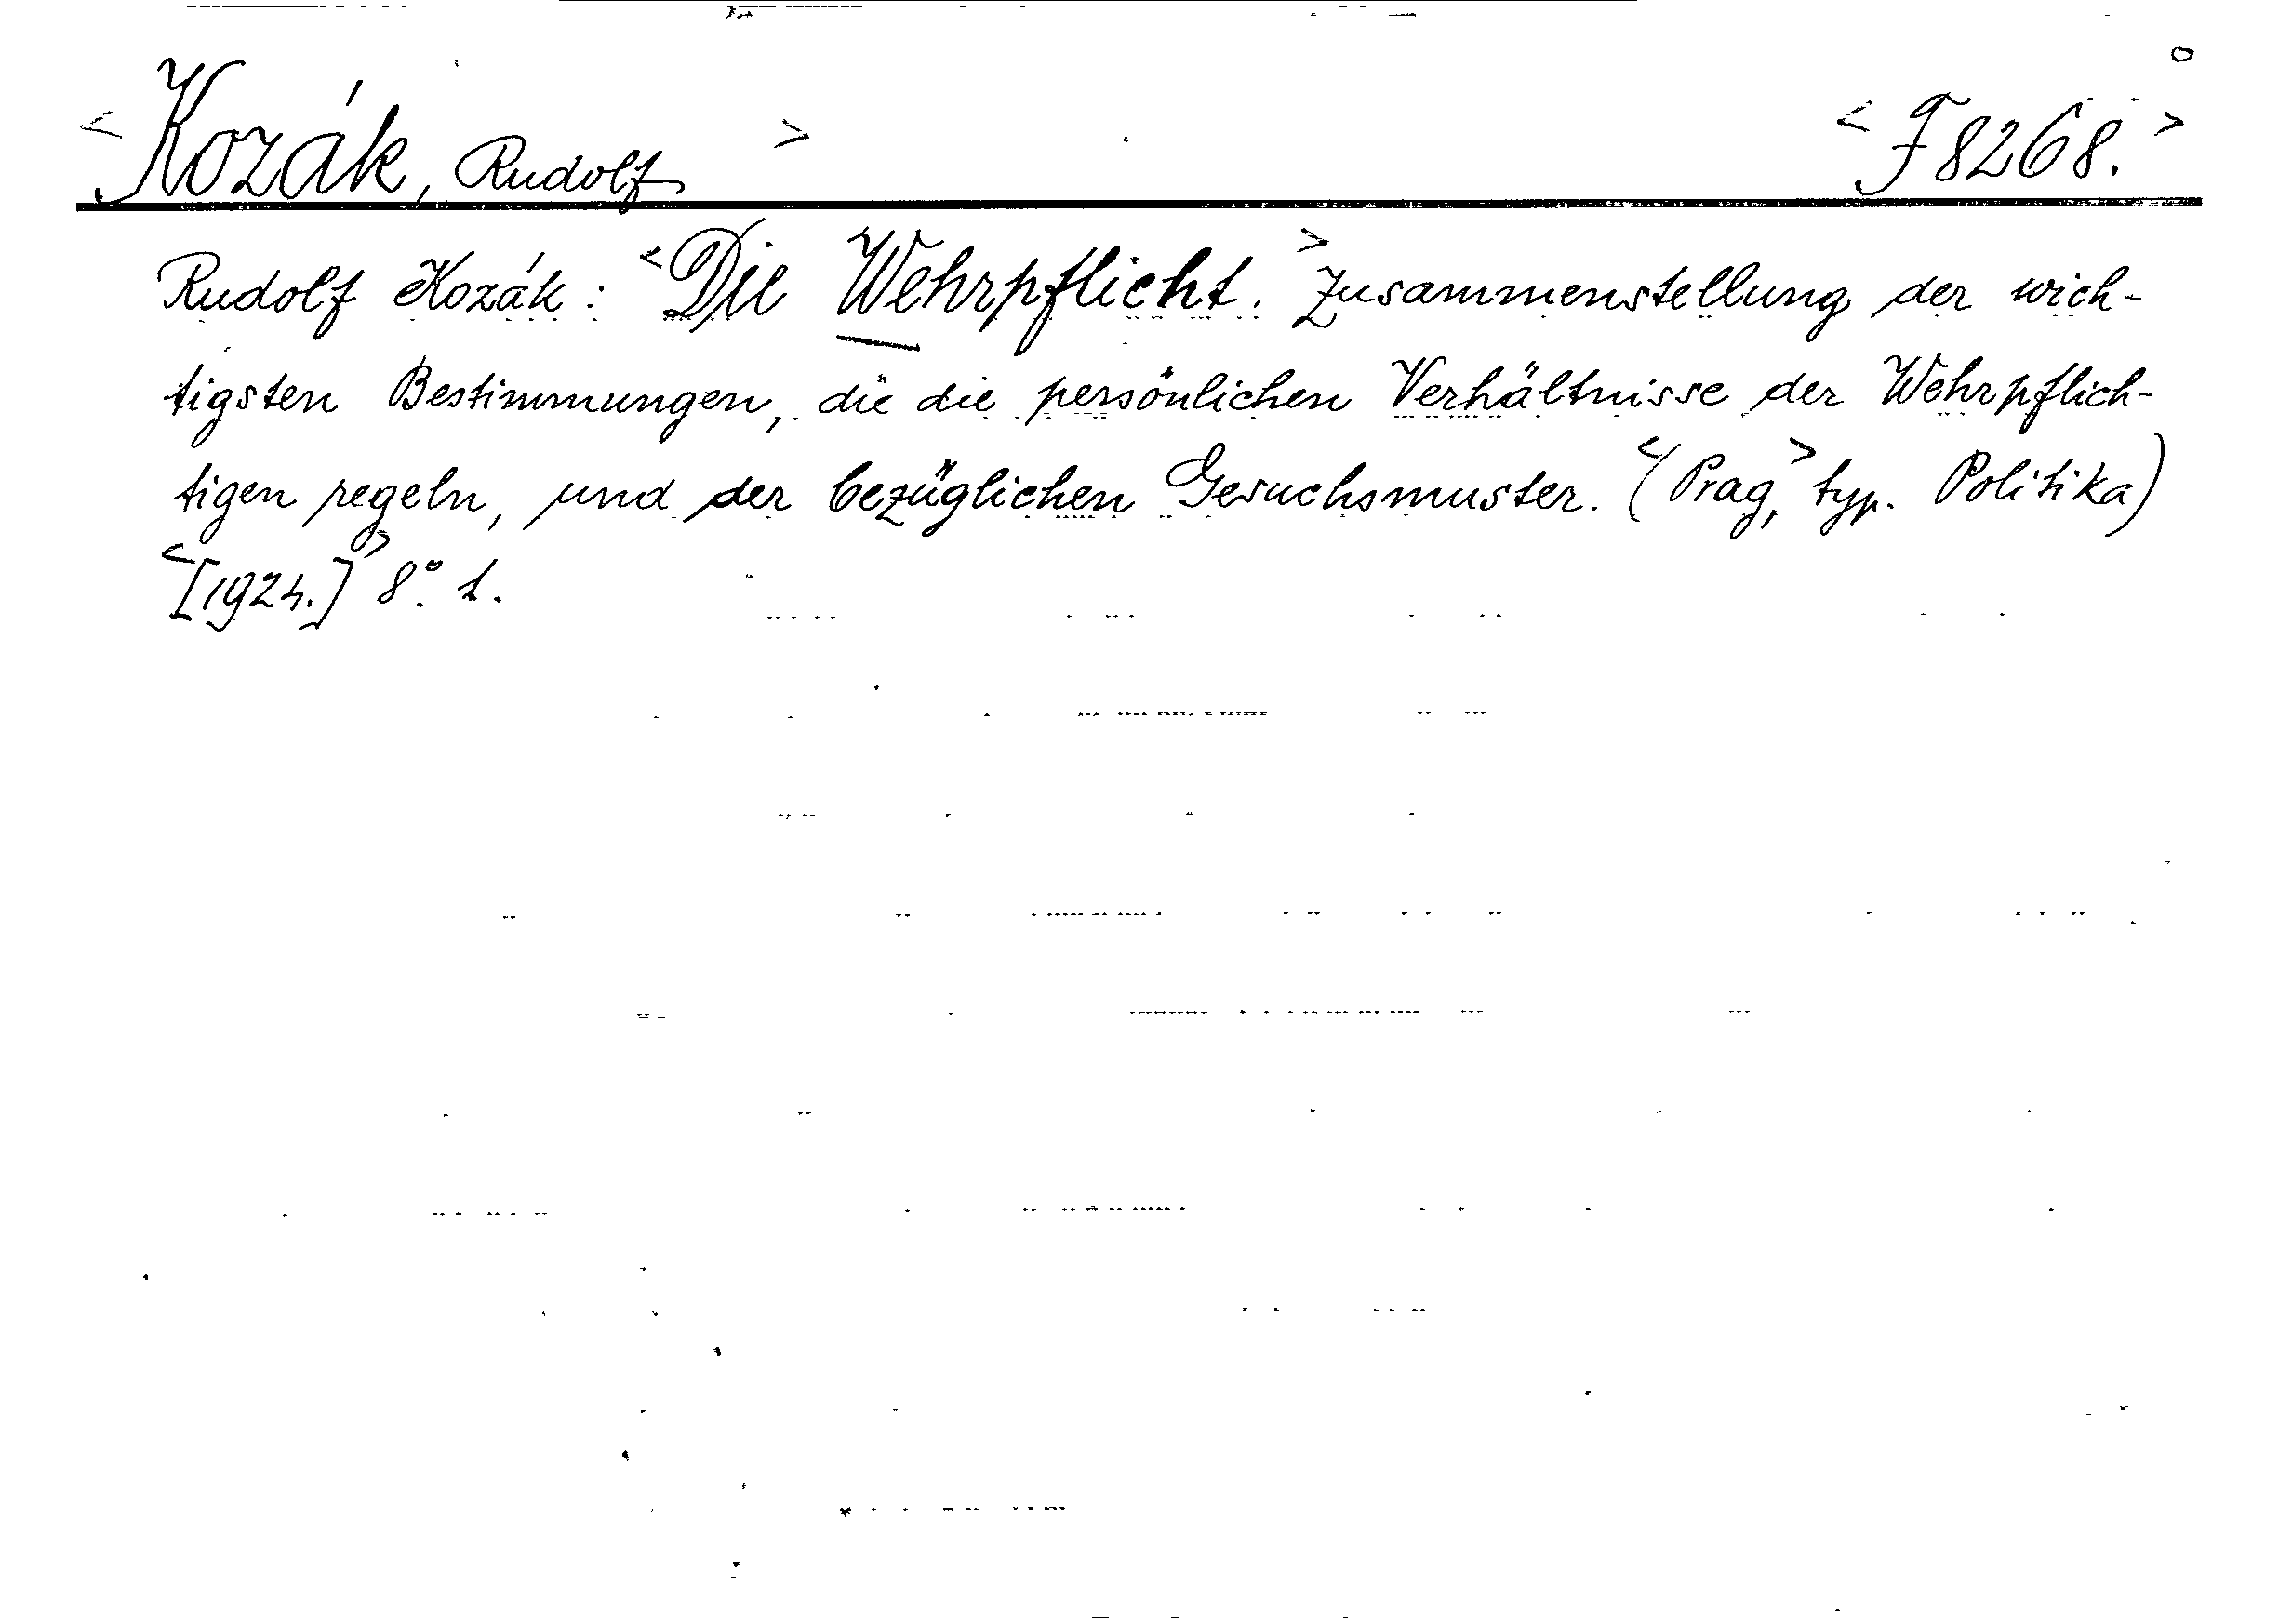 <Kozák, Rudolf> <F 8268.>
Rudolf Kozák: <Die Wehrpflicht.> Zusammenstellung der wich-
tigsten Bestimmungen, die die persönlichen Verhältnisse der Wehrpflich-
tigen regeln, und der bezüglichen Gesuchsmuster. <(Prag,> typ. Politika)
<[1924.]> 8°. 1.